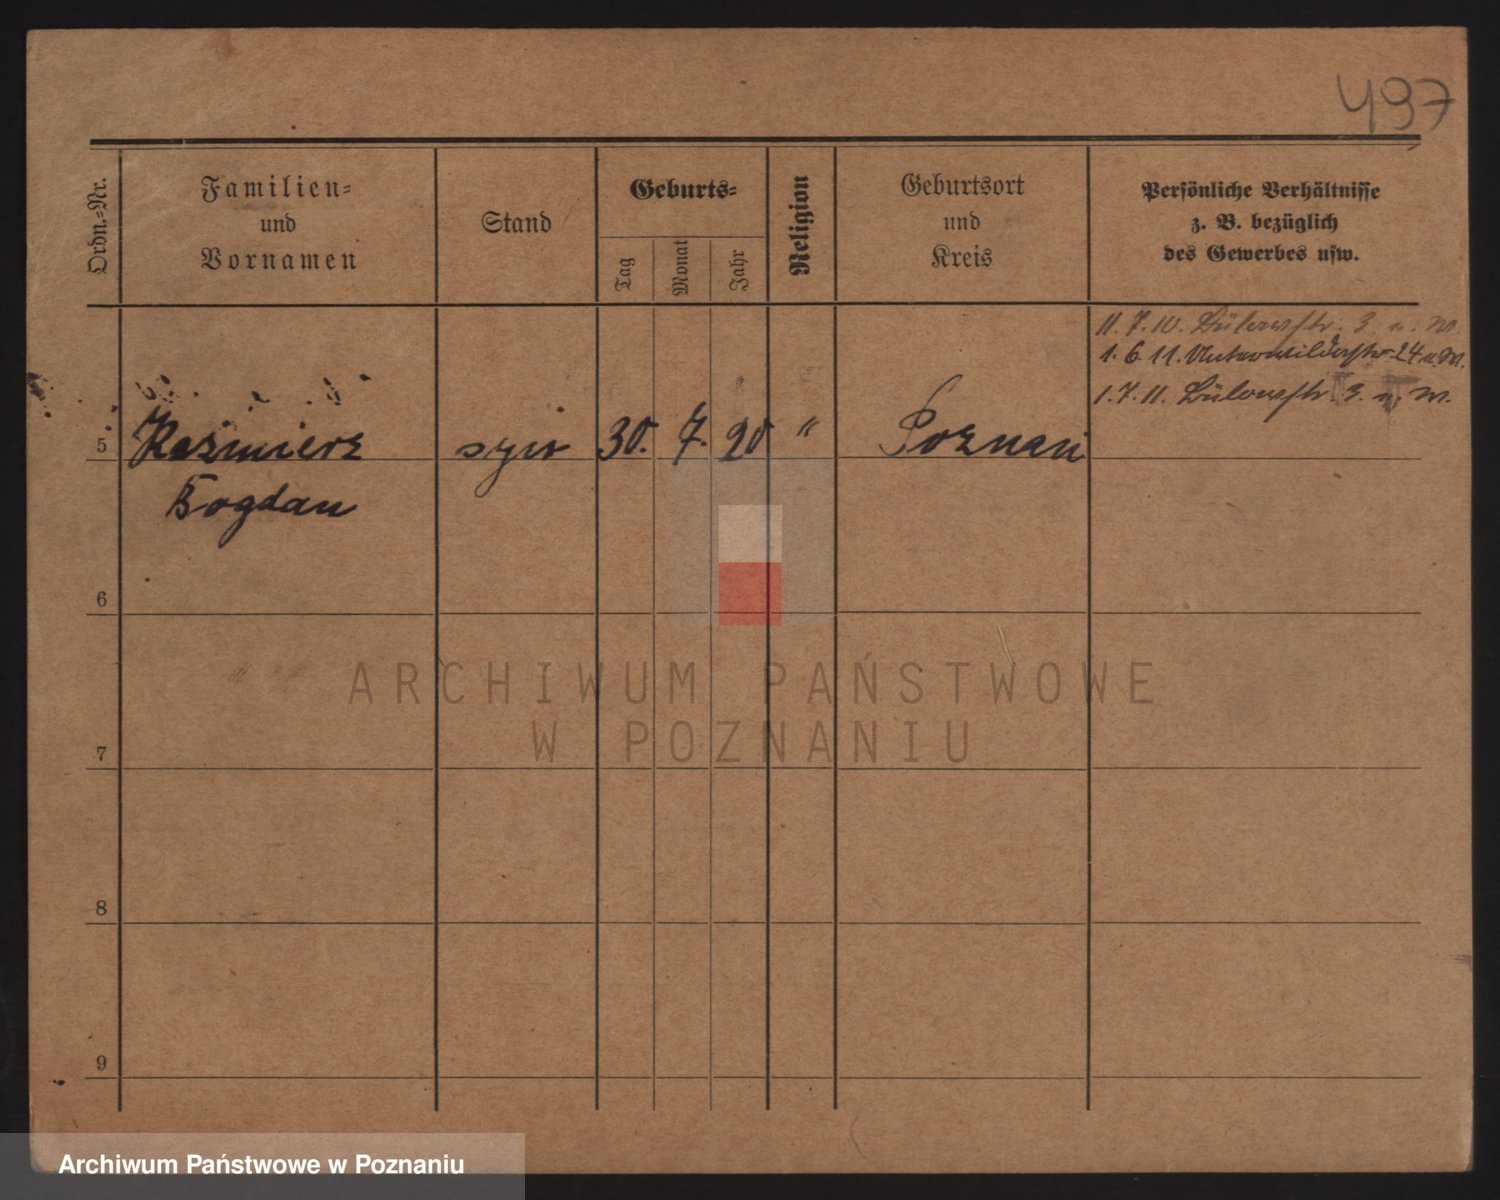 497
Ordn.-Nr.
Familien-
und
Vornamen
Stand
Geburts-
Tag
Monat
Jahr
Religion
Geburtsort
und
Kreis
Persönliche Verhältnisse
z. B. bezüglich
des Gewerbes usw.
11. 7. 10. Bülowstr. 3 u. W.
1. 6. 11. Unterwildastr. 24 u. W.
1. 7. 11. Bülowstr. 3. u. W.
5 Kazimierz syn 30. 7. 20 " Poznań
Bogdan
6
7
8
9
ARCHIWUM PAŃSTWOWE
W POZNANIU
Archiwum Państwowe w Poznaniu